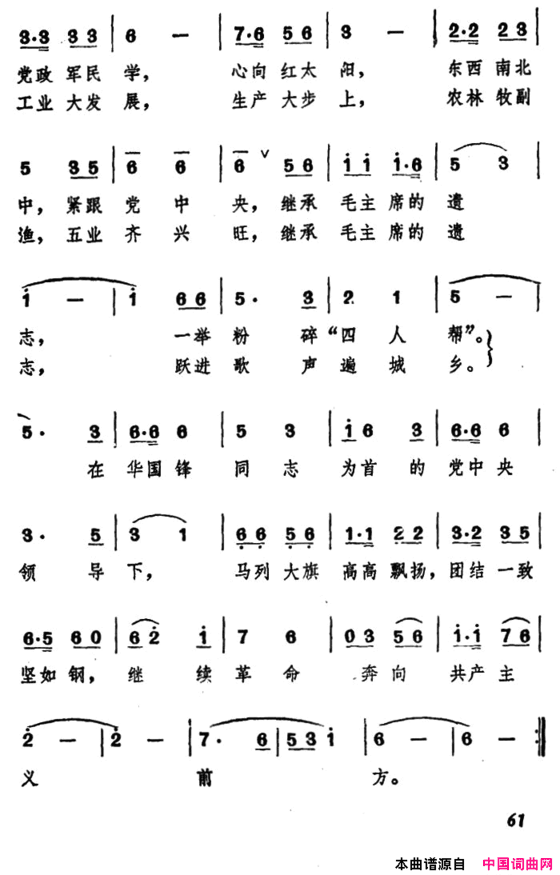 3·3 3 3 | 6 — | 7·6 5 6 | 3 — | 2·2 2 3 |
党政 军民 学， 心向 红太 阳， 东西 南北
工业 大发 展， 生产 大步 上， 农林 牧副
5 3 5 | 6 6 | 6 ∨ 5 6 | i i i·6 | 5 3 |
中，紧跟 党 中 央，继承 毛主 席的 遗
渔，五业 齐 兴 旺，继承 毛主 席的 遗
i — | i 6 6 | 5· 3 | 2 1 | 5 — |
志， 一举 粉 碎“四 人 帮”。
志， 跃进 歌 声 遍 城 乡。
5· 3 | 6·6 6 | 5 3 | i 6 3 | 6·6 6 |
在 华国 锋 同 志 为首 的 党中 央
3· 5 | 3 1 | 6 6 5 6 | 1·1 2 2 | 3·2 3 5 |
领 导 下， 马列 大旗 高高 飘扬，团结 一致
6·5 6 0 | 6 2 i | 7 6 | 0 3 5 6 | i·i 7 6 |
坚如 钢， 继 续 革 命 奔 向 共产 主
2 — | 2 — | 7· 6 | 5 3 i | 6 — | 6 — :‖
义 前 方。
61
本曲谱源自 中国词曲网